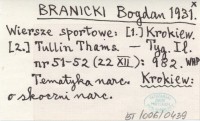 BRANICKI Bogdan 1931.x
Wiersze sportowe: [1.] Krokiew.
[2.] Tullin Thams. — Tyg. Il.
nr 51-52 (22 XII.): 982. WHP
Tematyka narc. Krokiew:
o skoczni narc.
BJ/006/0439